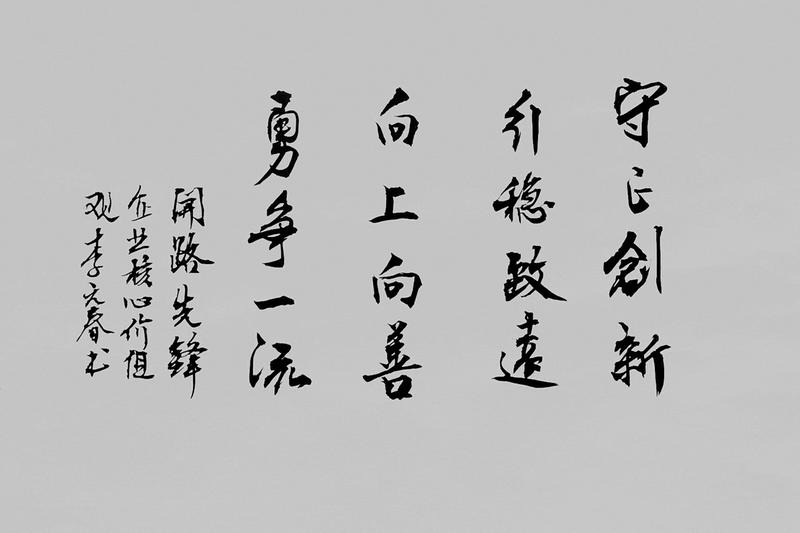 守正創新
行稳致遠
向上向善
勇争一流
開路先鋒
企业核心价值
观李元春书